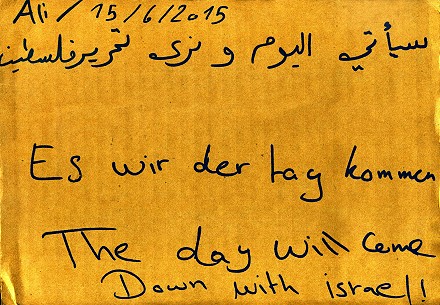 Ali / 15/6/2015
سيأتي اليوم و نرى تحرير فلسطين
Es wir der tag kommen
The day will came
Down with israel!